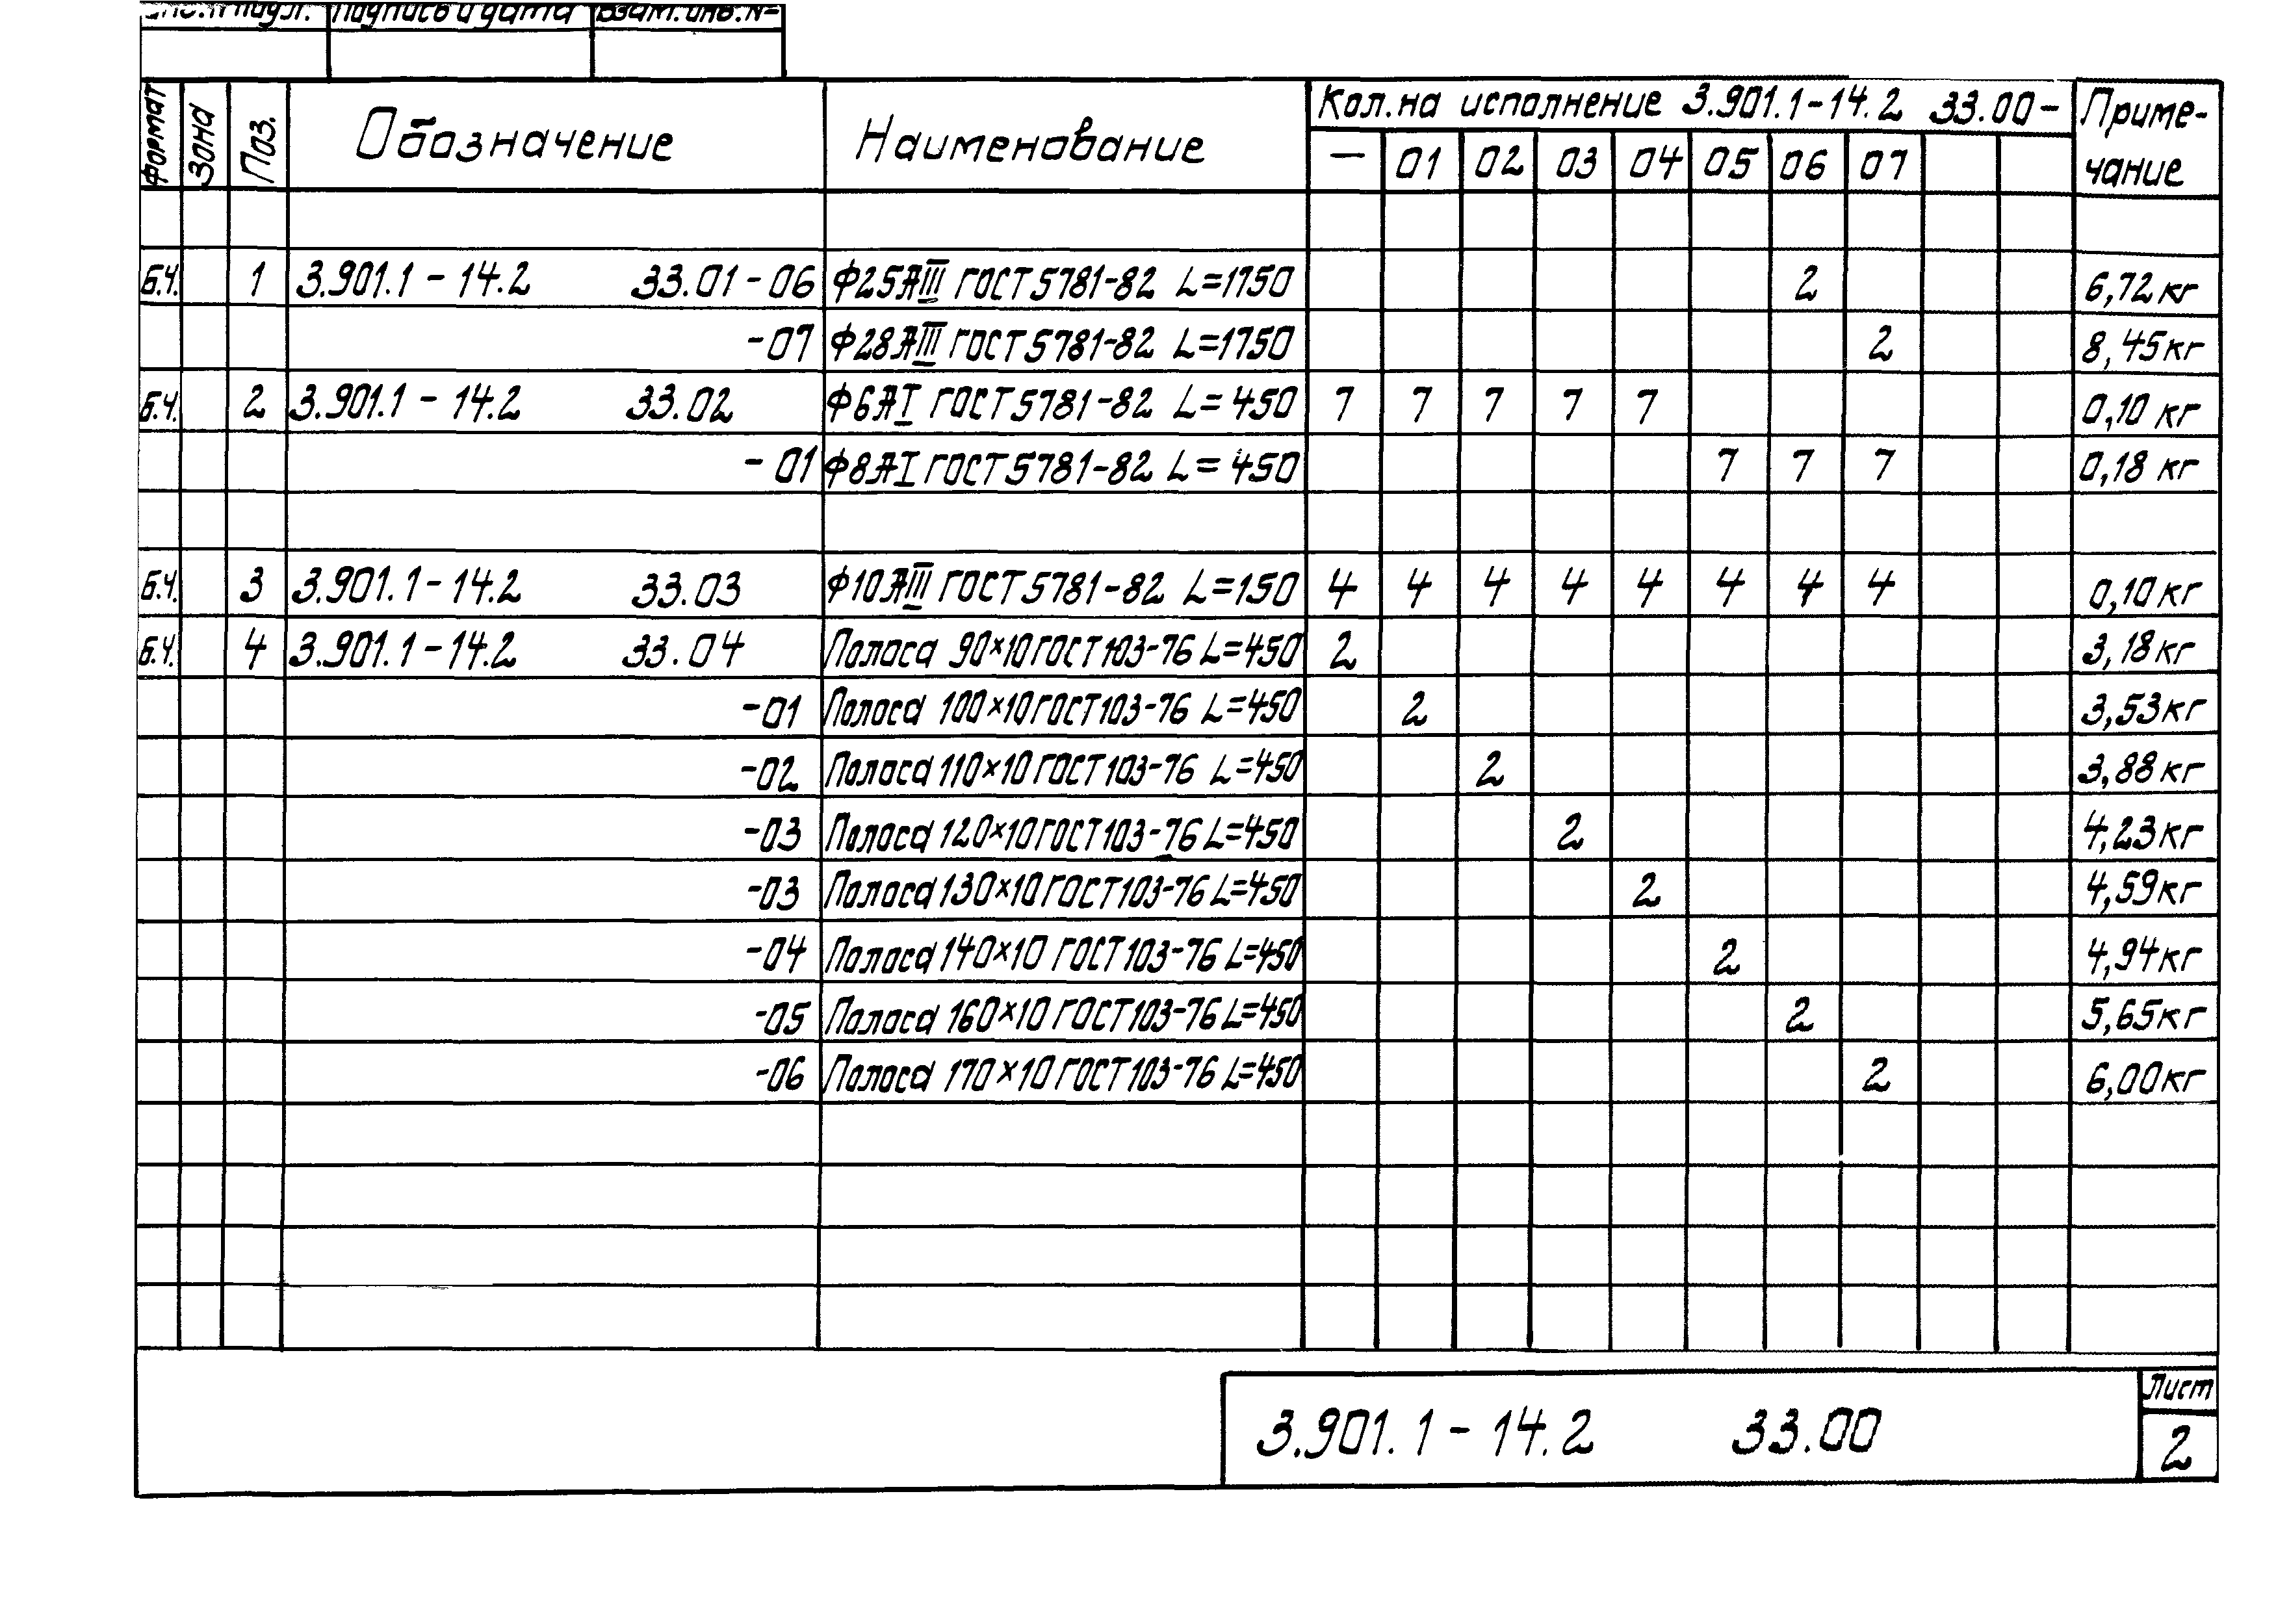 Подпись и дата Взам. инв. №
Формат Зона Поз. Обозначение Наименование Кол. на исполнение 3.901.1-14.2 33.00- Приме-
чание
— 01 02 03 04 05 06 07
Б.Ч. 1 3.901.1-14.2 33.01-06 Ф25АIII ГОСТ 5781-82 L=1750 2 6,72 кг
-07 Ф28АIII ГОСТ 5781-82 L=1750 2 8,45 кг
Б.Ч. 2 3.901.1-14.2 33.02 Ф6АI ГОСТ 5781-82 L=450 7 7 7 7 7 0,10 кг
-01 Ф8АI ГОСТ 5781-82 L=450 7 7 7 0,18 кг
Б.Ч. 3 3.901.1-14.2 33.03 Ф10АIII ГОСТ 5781-82 L=150 4 4 4 4 4 4 4 4 0,10 кг
Б.Ч. 4 3.901.1-14.2 33.04 Полоса 90×10 ГОСТ 103-76 L=450 2 3,18 кг
-01 Полоса 100×10 ГОСТ 103-76 L=450 2 3,53 кг
-02 Полоса 110×10 ГОСТ 103-76 L=450 2 3,88 кг
-03 Полоса 120×10 ГОСТ 103-76 L=450 2 4,23 кг
-03 Полоса 130×10 ГОСТ 103-76 L=450 2 4,59 кг
-04 Полоса 140×10 ГОСТ 103-76 L=450 2 4,94 кг
-05 Полоса 160×10 ГОСТ 103-76 L=450 2 5,65 кг
-06 Полоса 170×10 ГОСТ 103-76 L=450 2 6,00 кг
3.901.1-14.2 33.00
Лист
2